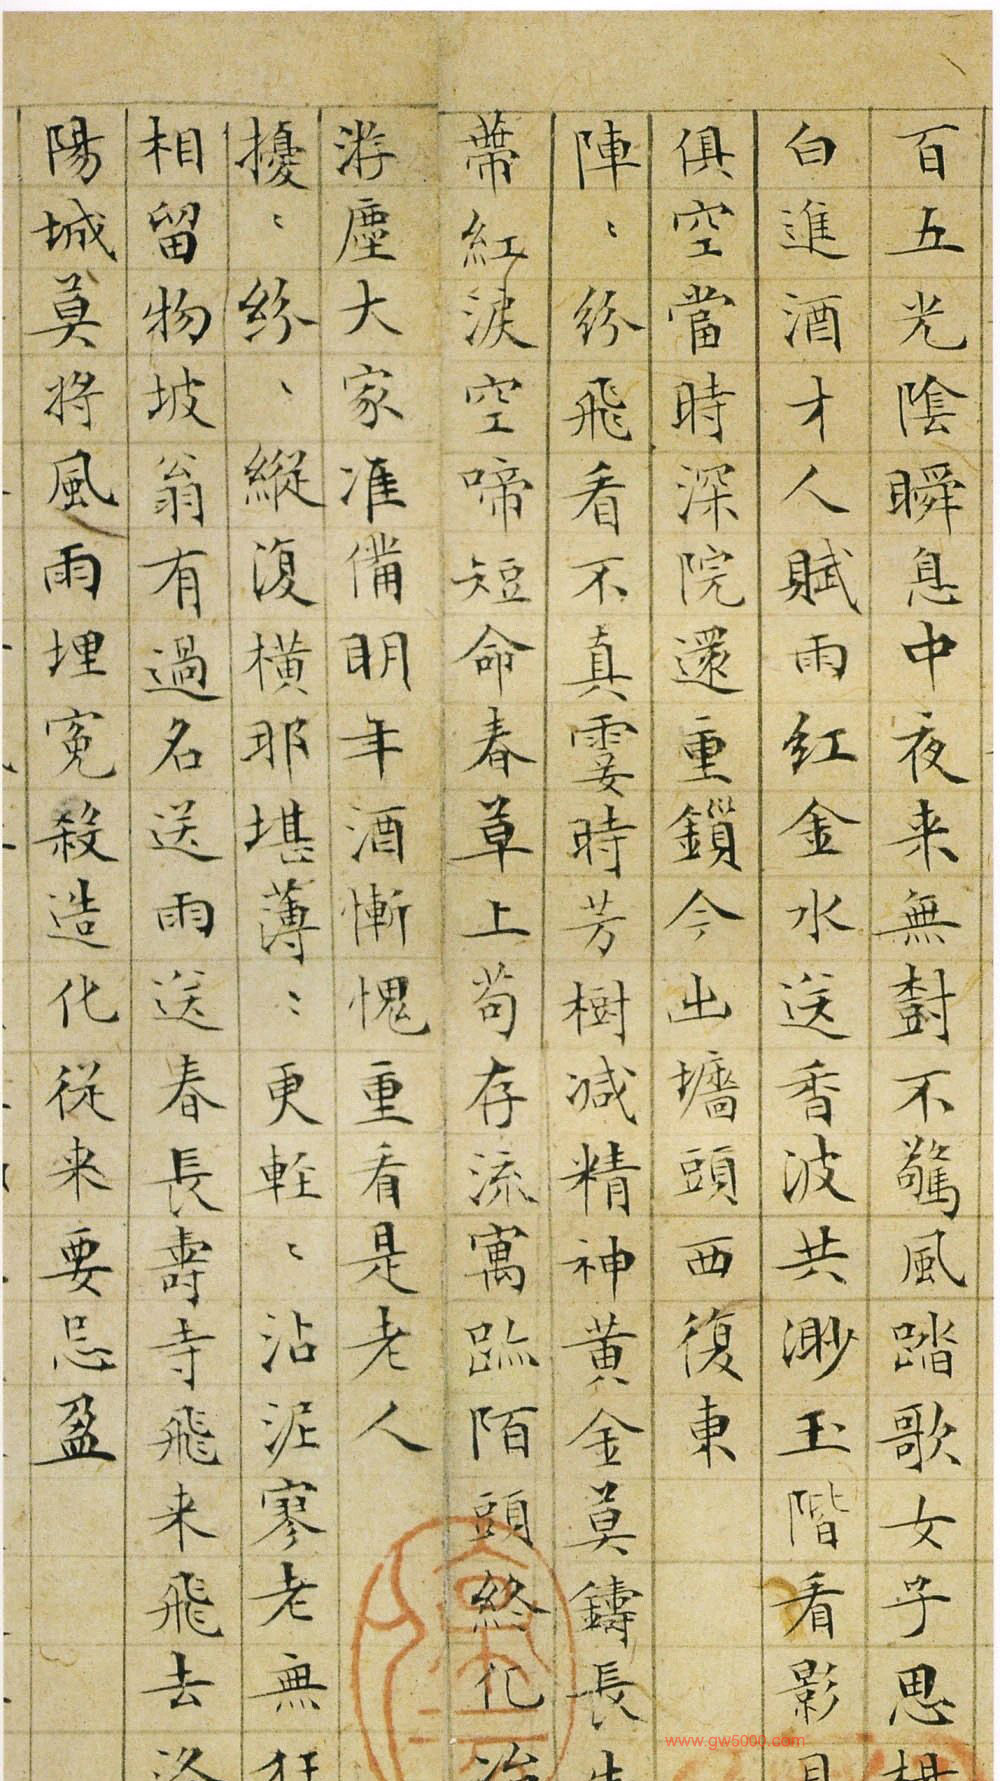 百五光陰瞬息中夜来無對不驚風踏歌女子思楊
白進酒才人賦雨紅金水送香波共渺玉階看影月
俱空當時深院還重鎖今出墻頭西復東
陣〻紛飛看不真霎時芳樹減精神黄金莫鑄長生
蒂紅淚空啼短命春草上苟存流寓跡陌頭終化冶
游塵大家准備明年酒慚愧重看是老人
擾〻紛〻縱復橫那堪薄〻更輕〻沾泥寥老無狂
相留物坡翁有過名送雨送春長壽寺飛来飛去洛
陽城莫將風雨埋冤殺造化從来要忌盈
www.gw5000.com